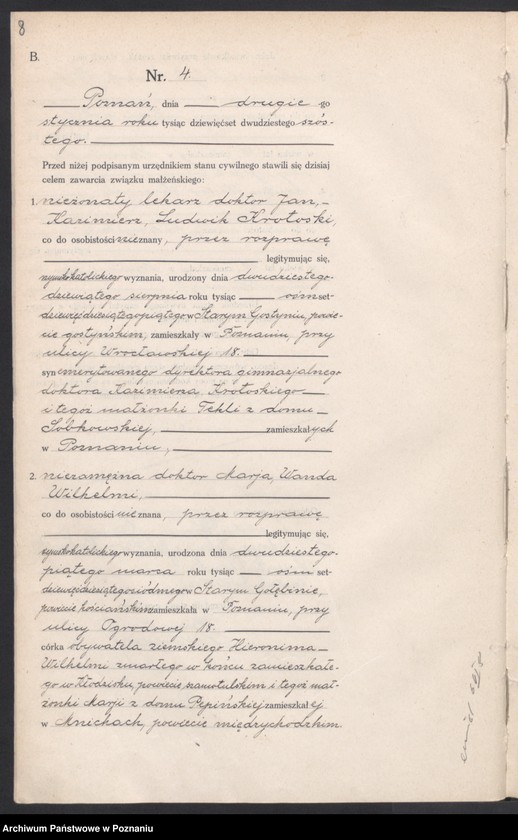 8
B.
Nr. 4.
Poznań, dnia drugie -go
stycznia roku tysiąc dziewięćset dwudziestego szós-
tego.
Przed niżej podpisanym urzędnikiem stanu cywilnego stawili się dzisiaj
celem zawarcia związku małżeńskiego:
1. nieżonaty lekarz doktor Jan,
Kazimierz, Ludwik Krotoski,
co do osobistości nieznany, przez rozprawę
legitymując się,
rzymskokatolickiego wyznania, urodzony dnia dwudziestego-
dziewiątego sierpnia roku tysiąc ośmset-
dziewięćdziesiątego piątego w Starym Gostyniu, powie-
cie gostyńskim, zamieszkały w Poznaniu, przy
ulicy Wrocławskiej 18.
syn emerytowanego dyrektora gimnazjalnego
doktora Kazimierza Krotoskiego
i tegoż małżonki Tekli z domu
Sóbkowskiej, zamieszkałych
w Poznaniu,
2. niezamężna doktor Marja, Wanda
Wilhelmi,
co do osobistości nieznana, przez rozprawę
legitymując się,
rzymskokatolickiego wyznania, urodzona dnia dwudziestego-
piątego marca roku tysiąc ośmset-
dziewięćdziesiątego siódmego w Starym Gołębinie,
powiecie kościańskim zamieszkała w Poznaniu, przy
ulicy Ogrodowej 18.
córka obywatela ziemskiego Hieronima
Wilhelmi zmarłego w końcu zamieszkałe-
go w Kłodzisku, powiecie szamotulskim i tegoż mał-
żonki Marji z domu Pepińskiej zamieszkałej
w Mnichach, powiecie międzychodzkim